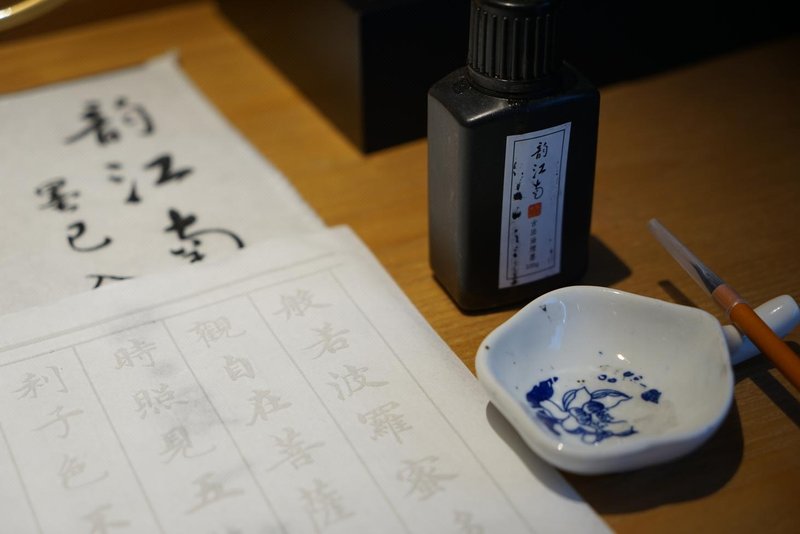 韵江南
墨已入
韵江南
般若波羅蜜多
觀自在菩薩
時照見五
利子色不